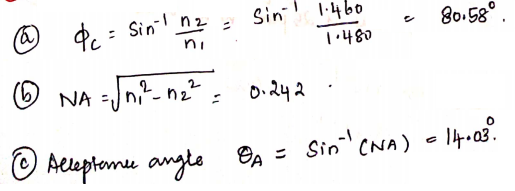 (a) ϕc = Sin⁻¹ n₂/n₁ = Sin⁻¹ 1.460/1.480 = 80.58°.
(b) NA = √(n₁² - n₂²) = 0.242 .
(c) Acceptance angle θA = Sin⁻¹ (NA) = 14.03°.